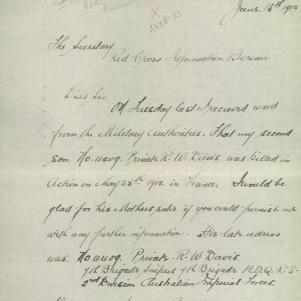 June 16th 1918
The Secretary
Red Cross Information Bureau
Dear Sir
On Tuesday last I received word
from the Military Authorities. That my second
son. No. Private R. W. Davis was killed in
Action on May 28th 1918. in France. I would be
glad for his Mothers sake if you could furnish me
with any further information. His late address
was. No Private R. W. Davis
7th Brigade H.D.Q.
2nd Division Australian Imperial Forces.